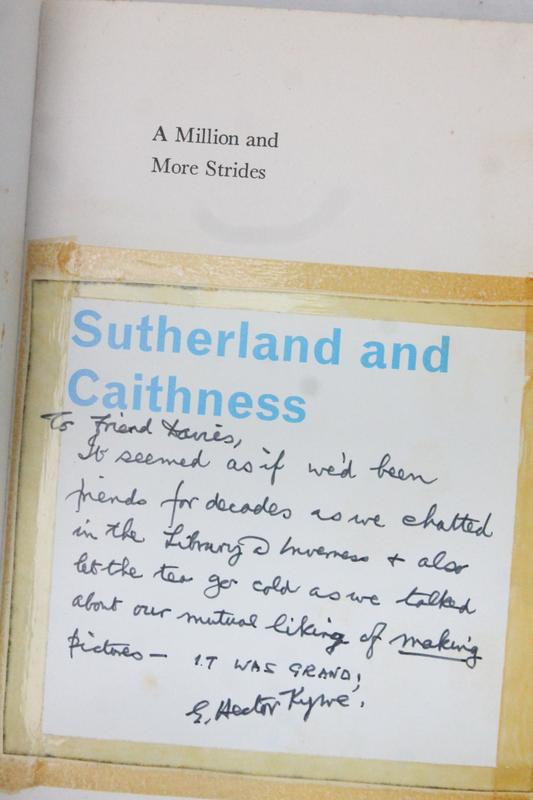 A Million and
More Strides
Sutherland and
Caithness
To friend Davies,
It seemed as if we'd been
friends for decades as we chatted
in the Library @ Inverness + also
let the tea go cold as we talked
about our mutual liking of making
pictures — IT WAS GRAND!
E. Hector Kyme.